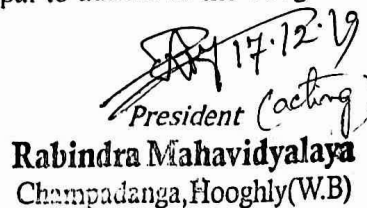 17.12.19
President (acting)
Rabindra Mahavidyalaya
Champadanga, Hooghly (W.B)